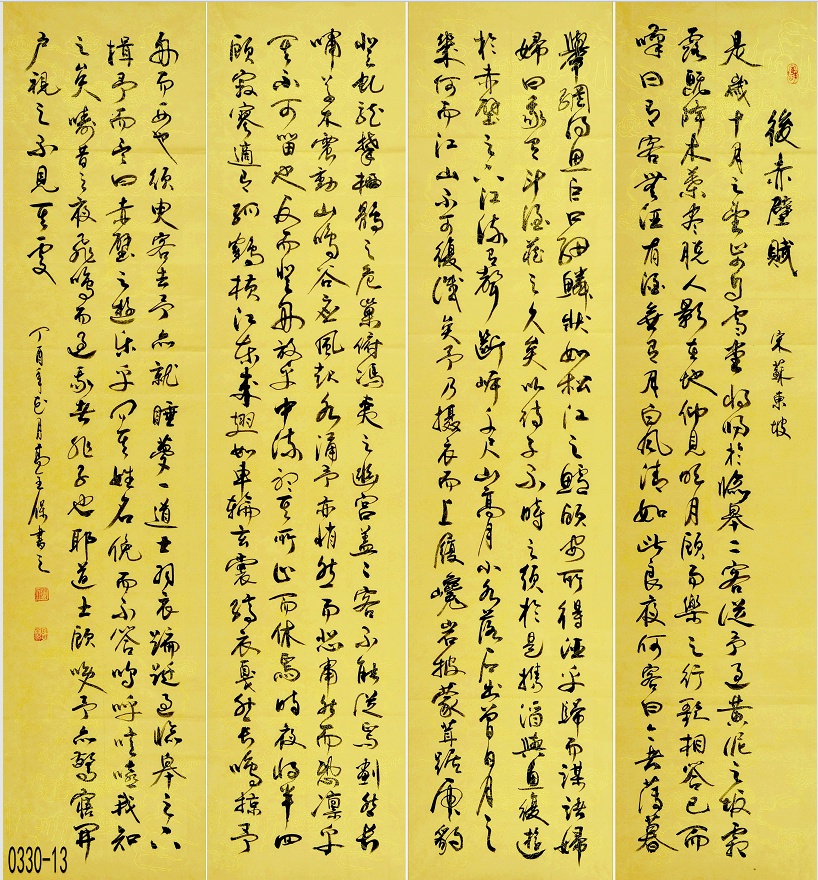 後赤壁賦 宋蘇東坡
是歲十月之望步自雪堂將歸於臨皋二客從予過黃泥之坂霜
露既降木葉盡脫人影在地仰見明月顧而樂之行歌相答已而
嘆曰有客無酒有酒無肴月白風清如此良夜何客曰今者薄暮
舉網得魚巨口細鱗狀如松江之鱸顧安所得酒乎歸而謀諸婦
婦曰我有斗酒藏之久矣以待子不時之須於是攜酒與魚復遊
於赤壁之下江流有聲斷岸千尺山高月小水落石出曾日月之
幾何而江山不可復識矣予乃攝衣而上履巉岩披蒙茸踞虎豹
登虬龍攀栖鶻之危巢俯馮夷之幽宮蓋二客不能從焉劃然長
嘯草木震動山鳴谷應風起水涌予亦悄然而悲肅然而恐凜乎
其不可留也反而登舟放乎中流聽其所止而休焉時夜將半四
顧寂寥適有孤鶴橫江東來翅如車輪玄裳縞衣戛然長鳴掠予
舟而西也須臾客去予亦就睡夢一道士羽衣蹁躚過臨皋之下
揖予而言曰赤壁之遊樂乎問其姓名俛而不答嗚呼噫嘻我知
之矣疇昔之夜飛鳴而過我者非子也耶道士顧笑予亦驚寤開
戶視之不見其處 丁酉年月書之
0330-13